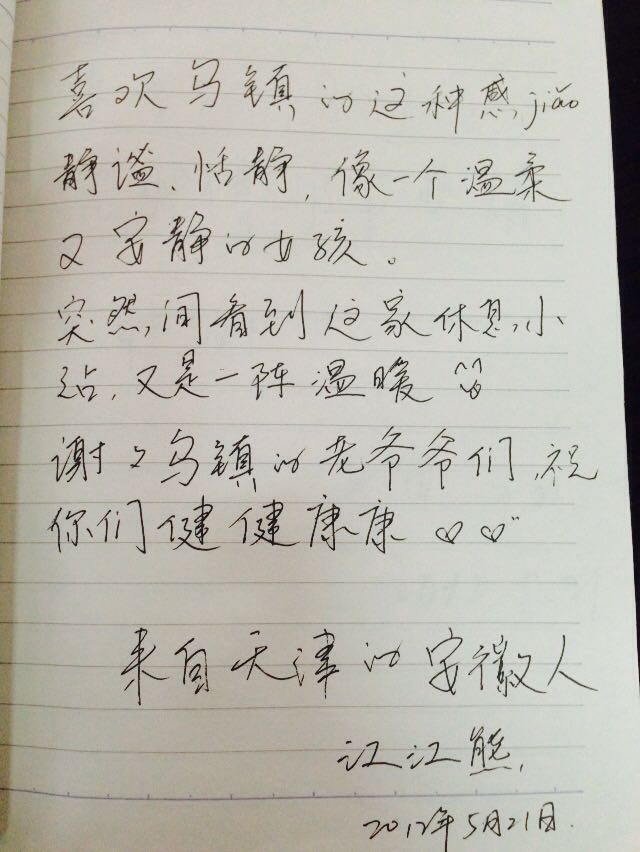 喜欢乌镇的这种感jiǎo
静谧、恬静，像一个温柔
又安静的女孩。
突然间看到这家休息小
站，又是一阵温暖 ^^
谢々乌镇的老爷爷们，祝
你们健健康康 ♡♡
来自天津的安徽人
江江熊
2012年5月21日.